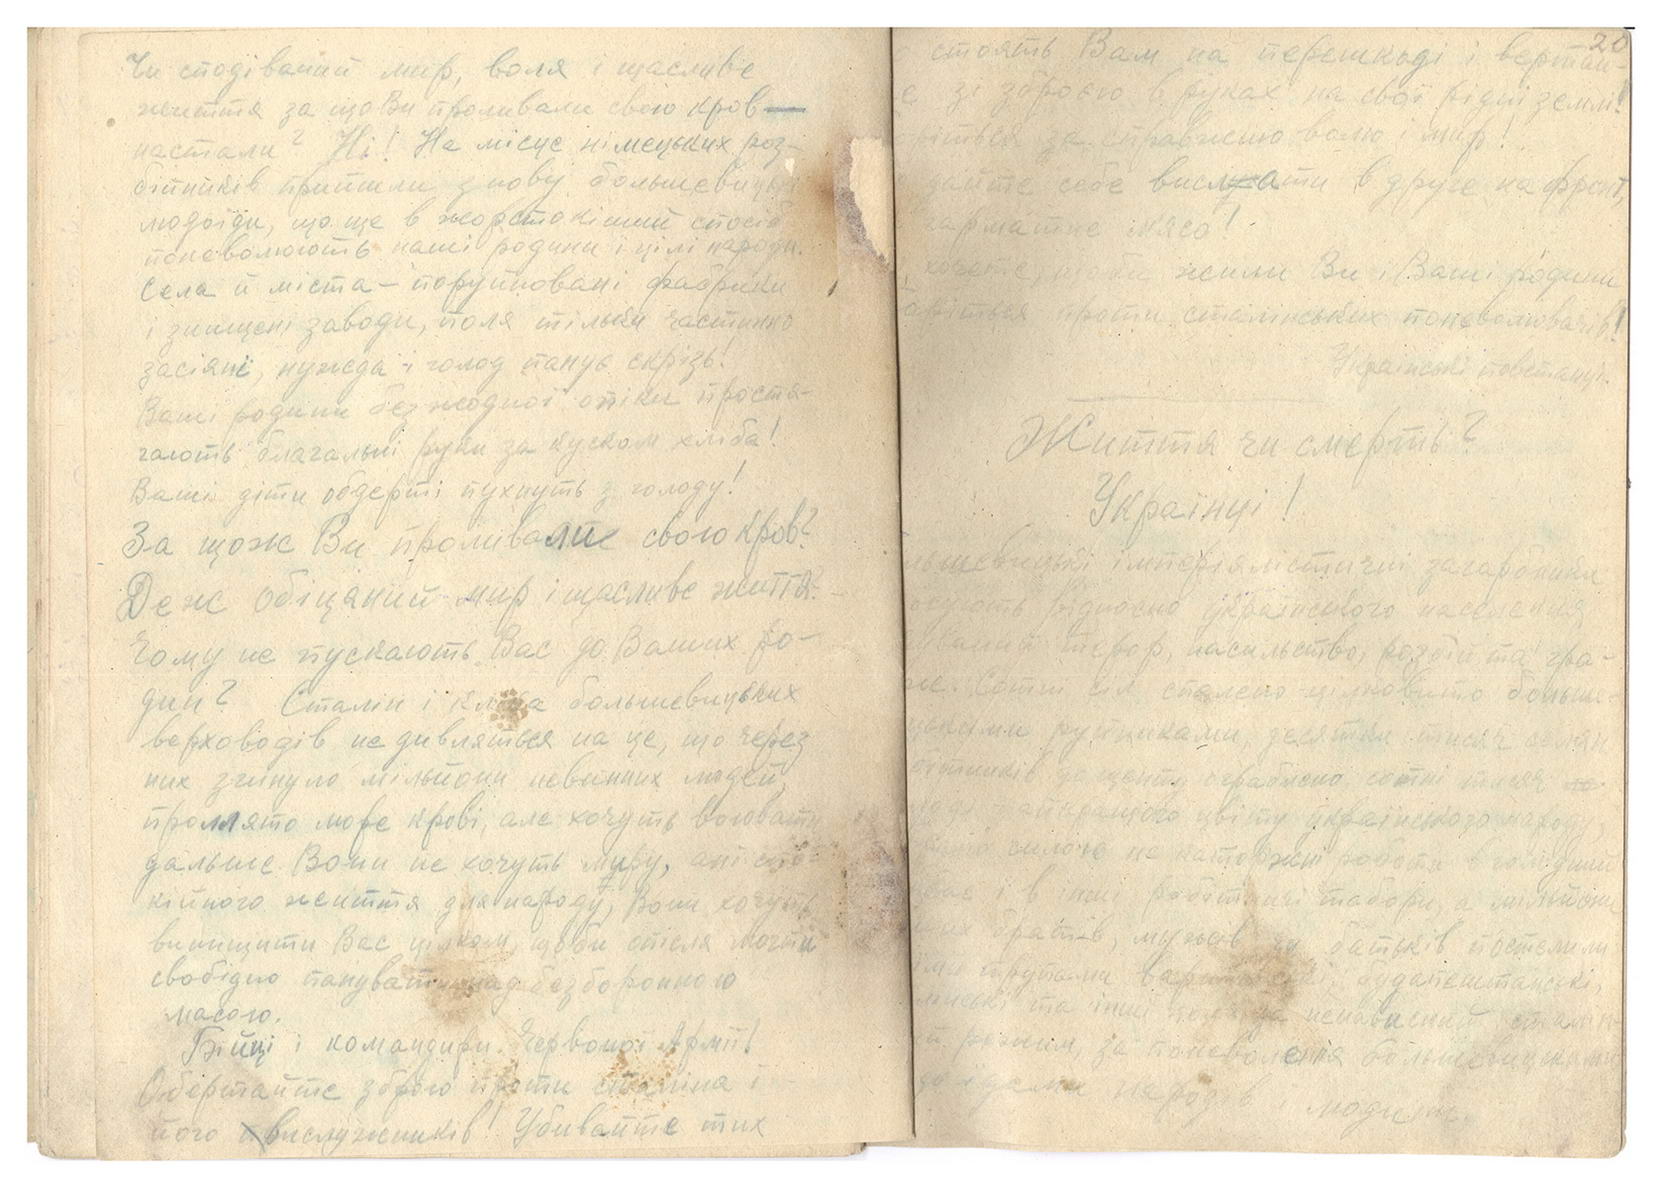 Чи сподіваний мир, воля і щасливе
життя за що Ви проливали свою кров —
настали? Ні! На місце німецьких роз-
бійників прийшли знову большевицькі
людоїди, що ще в жорстокіший спосіб
поневолюють наші родини і цілі народи.
Села й міста – поруйновані фабрики
і знищені заводи, поля тільки частинно
засіяні, нужда і голод панує скрізь.
Ваші родини без жодної опіки простя-
гають благальні руки за куском хліба!
Ваші діти обдерті пухнуть з голоду!
За щож Ви проливали свою кров?
Деж обіцяний мир і щасливе життя?
Чому не пускають Вас до Ваших ро-
дин? Сталін і кліка большевицьких
верховодів не дивляться на це, що через
них згинуло мільйони невинних людей,
пролято море крові, але хочуть воювати
дальше. Вони не хочуть миру, ані спо-
кійного життя для народу, Вони хочуть
винищити Вас цілком, щоби опісля могти
свобідно панувати над безборонною
масою.
Бійці і командири Червоної Армії!
Обертайте зброю проти сталіна і
його вислужників! Убивайте тих
20
стоять Вам на перешкоді і вертай-
е зі зброєю в руках на свої рідні землі!
ріться за справжню волю і мир!
дайте себе вислати в друге на фронт,
гарматне мясо!
хочете, щоби жили Ви і Ваші родини
аріться проти сталінських поневолювачів!
Українські повстанці.
Життя чи смерть?
Українці!
льшевицькі імперіялістичні загарбники
осують відносно українського населення
иваний терор, насильство, розбій та гра-
же. Сотні сіл спалено цілковито больше-
цькими руїнниками, десятки тисяч селян
бітників до щенту ограблено сотні тисяч
лоді найкращого цвіту українського народу,
силою на каторжні роботи в голодний
бас і в інші робітничі табори, а мільйони
них братів, мужів чи батьків постелили
їми трупами варшавські, будапештанські,
лінські та інші поля за ненависний сталін-
й режим, за поневолення большевицькими
доїдами народів і людини.